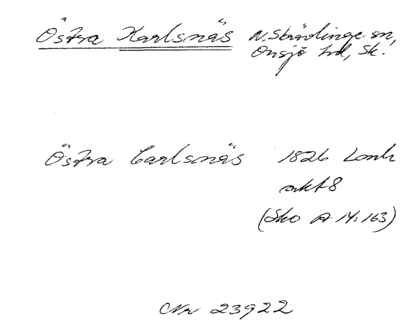 Östra Karlsnäs N. Skrävlinge sn,
Onsjö hd, Sk.
Östra Carlsnäs 1826 Lantm
akt 8
(Sko A 14:163)
Nr 23922